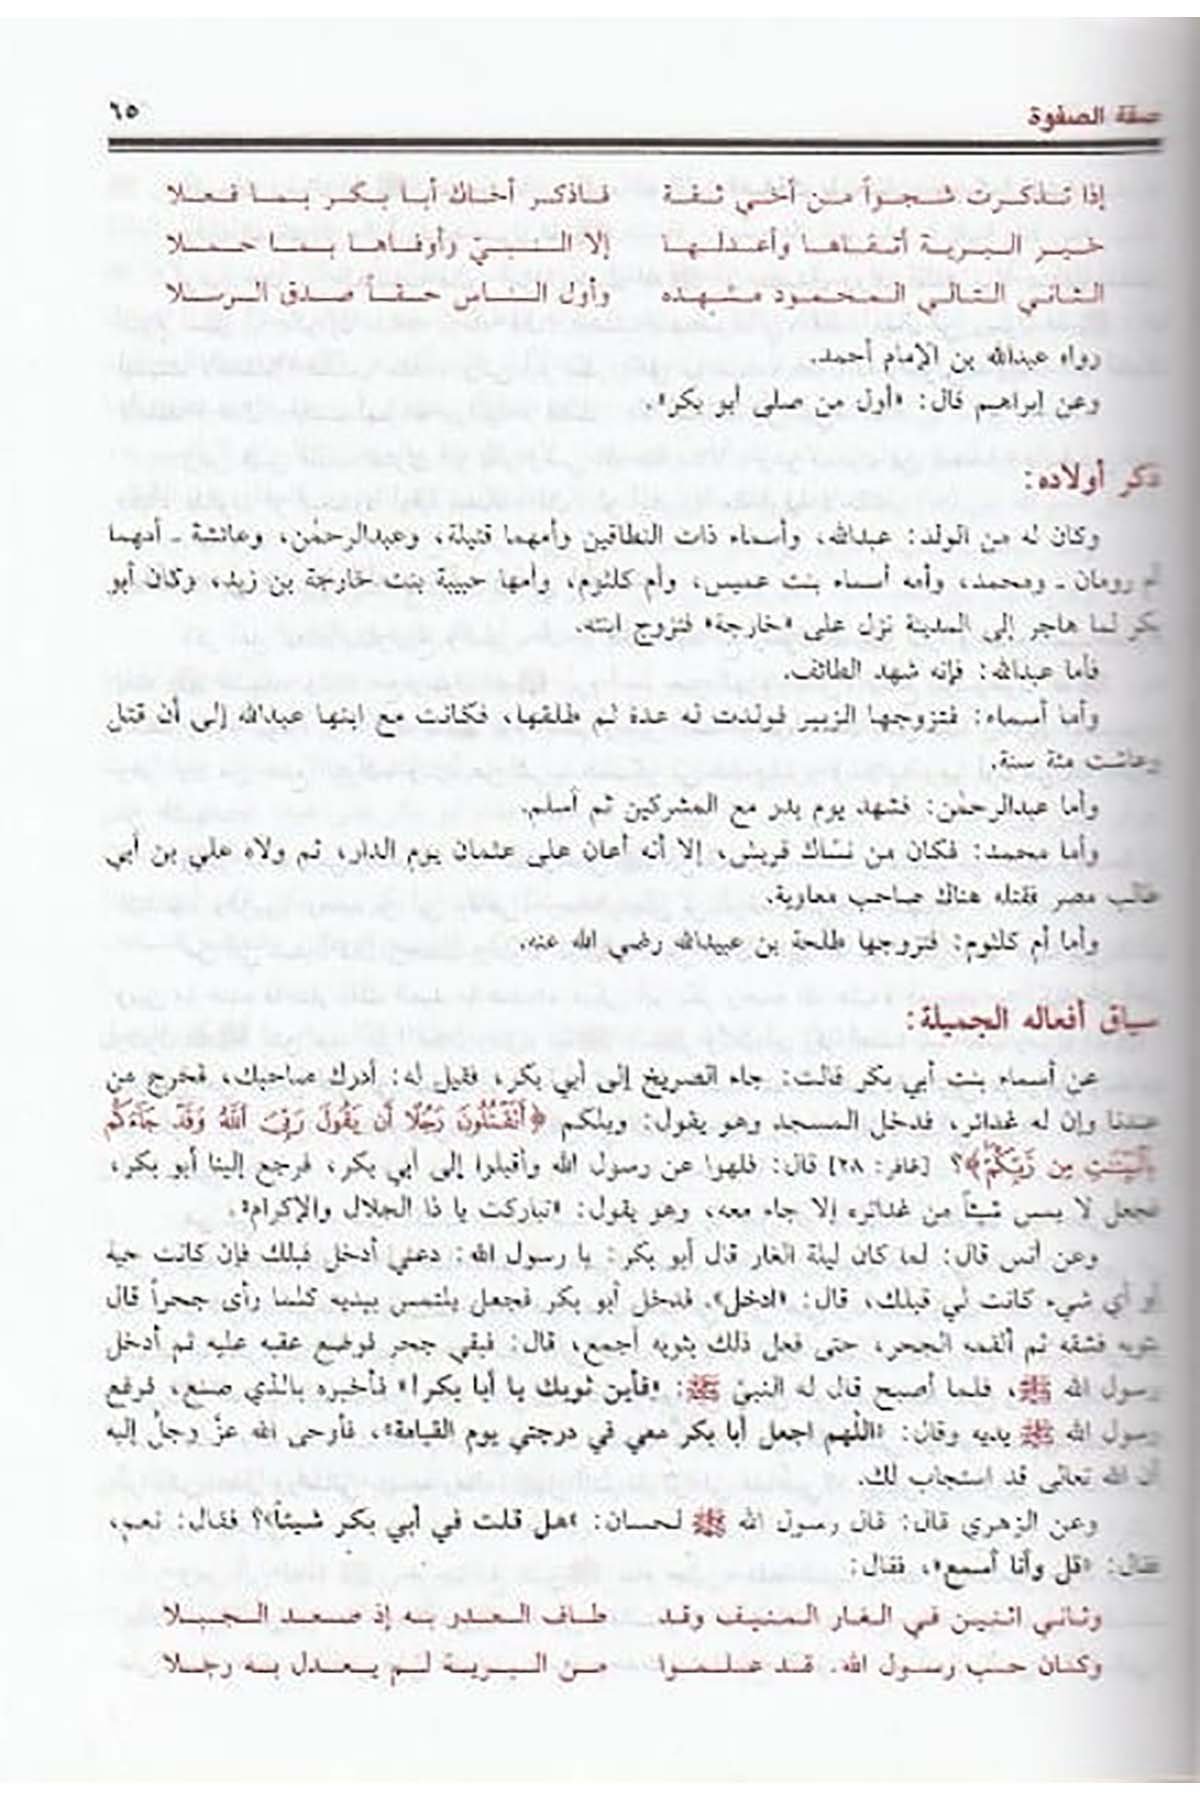 صفة الصفوة ٦٥
إذا تذكرت شجواً من أخي ثقة فاذكر أخاك أبا بكر بما فعلا
خير البرية أتقاها وأعدلها إلا النبيّ وأوفاها بما حملا
الثاني التالي المحمود مشهده وأول الناس حقاً صدق الرسلا
رواه عبدالله بن الإمام أحمد.
وعن إبراهيم قال: «أول من صلى أبو بكر».
ذكر أولاده:
وكان له من الولد: عبدالله، وأسماء ذات النطاقين وأمهما قتيلة، وعبدالرحمٰن، وعائشة ـ أمهما
أم رومان ـ ومحمد، وأمه أسماء بنت عميس، وأم كلثوم، وأمها حبيبة بنت خارجة بن زيد، وكان أبو
بكر لما هاجر إلى المدينة نزل على «خارجة» فتزوج ابنته.
فأما عبدالله: فإنه شهد الطائف.
وأما أسماء: فتزوجها الزبير فولدت له عدة ثم طلقها، فكانت مع ابنها عبدالله إلى أن قتل
وعاشت مئة سنة.
وأما عبدالرحمٰن: فشهد يوم بدر مع المشركين ثم أسلم.
وأما محمد: فكان من نسّاك قريش، إلا أنه أعان على عثمان يوم الدار، ثم ولاه علي بن أبي
طالب مصر فقتله هناك صاحب معاوية.
وأما أم كلثوم: فتزوجها طلحة بن عبيدالله رضي الله عنه.
سياق أفعاله الجميلة:
عن أسماء بنت أبي بكر قالت: جاء الصريخ إلى أبي بكر، فقيل له: أدرك صاحبك، فخرج من
عندنا وإن له غدائر، فدخل المسجد وهو يقول: ويلكم ﴿أَنَقْتُلُونَ رَجُلًا أَن يَقُولَ رَبِّىَ اللَّهُ وَقَدْ جَاءَكُم
بِالْبَيِّنَتِ مِن رَّبِّكُمْ﴾؟ [غافر: ٢٨] قال: فلهوا عن رسول الله وأقبلوا إلى أبي بكر، فرجع إلينا أبو بكر،
فجعل لا يمس شيئاً من غدائره إلا جاء معه، وهو يقول: «تباركت يا ذا الجلال والإكرام».
وعن أنس قال: لما كان ليلة الغار قال أبو بكر: يا رسول الله: دعني أدخل قبلك فإن كانت حية
أو أي شيء كانت لي قبلك، قال: «ادخل». فدخل أبو بكر فجعل يلتمس بيديه كلما رأى جحراً قال
بثوبه فشقه ثم ألقمه الجحر، حتى فعل ذلك بثوبه أجمع، قال: فبقي جحر فوضع عقبه عليه ثم أدخل
رسول الله ﷺ، فلما أصبح قال له النبيّ ﷺ: «فأين ثوبك يا أبا بكر؟» فأخبره بالذي صنع، فرفع
رسول الله ﷺ يديه وقال: «اللّٰهم اجعل أبا بكر معي في درجتي يوم القيامة»، فأوحى الله عزّ وجلّ إليه
أن الله تعالى قد استجاب لك.
وعن الزهري قال: قال رسول الله ﷺ لحسان: «هل قلت في أبي بكر شيئاً»؟ فقال: نعم،
فقال: «قل وأنا أسمع»، فقال:
وثاني اثنين في الغار المنيف وقد طاف العدو به إذ صعد الجبلا
وكان حب رسول الله. قد علموا من البرية لم يعدل به رجلا